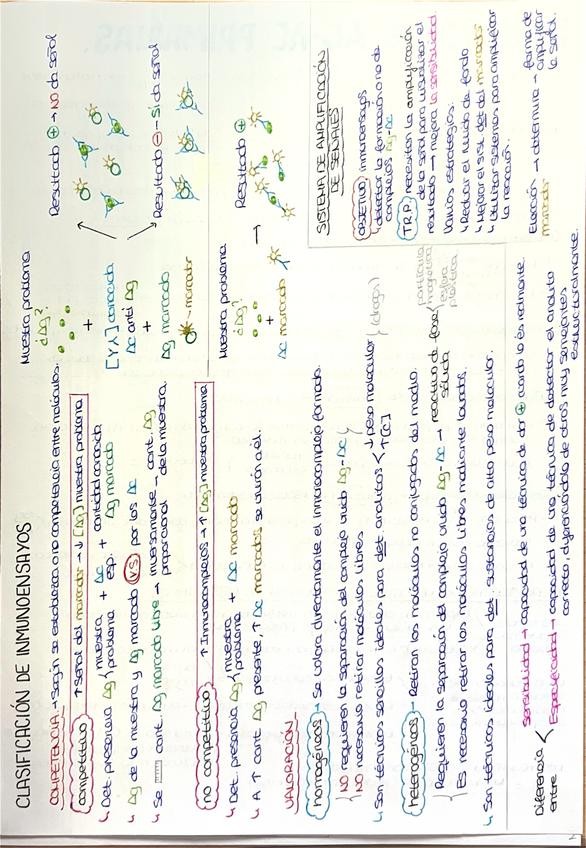 CLASIFICACIÓN DE INMUNOENSAYOS
COMPETENCIA → Según se establezca o no competencia entre moléculas.
competitivo ↑ Señal del marcador → ↓ [Ag] muestra problema
↳ Det. presencia Ag { muestra problema + Ac esp. + cantidad conocida Ag marcado
↳ Ag de la muestra y Ag marcado VS por los Ac
↳ Se cant. Ag marcado libre → inversamente proporcional → cant. Ag de la muestra.
no competitivo ↑ Inmunocomplejos → ↑ [Ag] muestra problema
↳ Det. presencia Ag { muestra problema + Ac marcado
↳ A ↑ cant Ag presente, ↑ Ac marcados se unirán a él.
VALORACIÓN
homogéneos → Se valora directamente el inmunocomplejo formado.
NO requieren la separación del complejo unido Ag-Ac
NO necesario retirar moléculas libres
↳ Son técnicas sencillas ideales para det analitos < ↓ peso molecular (drogas)
↑ [c]
heterogéneos → Retiran las moléculas no conjugadas del medio.
Requieren la separación del complejo unido Ag-Ac → reactivo de fase sólida { partícula magnética
esfera plástica
Es necesario retirar las moléculas libres mediante lavados.
↳ Son técnicas ideales para det sustancias de alto peso molecular.
Diferencia entre < Sensibilidad → capacidad de una técnica de dar ⊕ cuando lo es realmente.
Especificidad → capacidad de una técnica de detectar el analito correcto, diferenciándolo de otros muy semejantes estructuralmente.
Muestra problema
¿Ag?
+
[YY] conocida
Ac anti Ag
+
Ag marcado
→ marcador
Resultado ⊕ → NO da señal
Resultado ⊖ → SÍ da señal
Muestra problema
¿Ag?
+
Ac marcado
Resultado ⊕
SISTEMA DE AMPLIFICACIÓN DE SEÑALES
OBJETIVO inmunoensayos
↳ detectar la formación o no de complejos Ag-Ac
T.R.P. necesitan la amplificación de la señal para visualizar el resultado → mejora la sensibilidad.
Varias estrategias:
↳ Reducir el ruido de fondo
↳ Mejorar el sist. det del marcador
↳ Utilizar sistemas para amplificar la reacción.
Elección marcador → determina → forma de amplificar la señal.